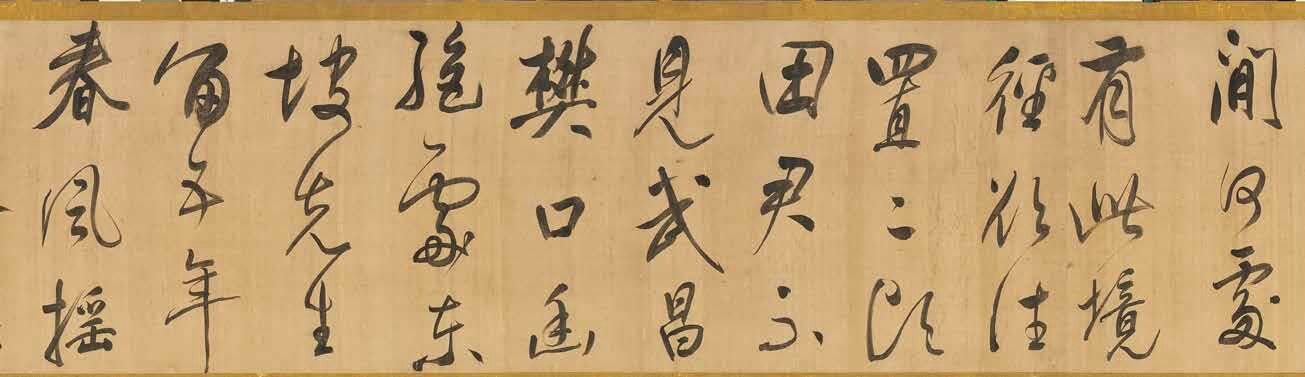 間何處
有此境
徑欲往
置二頃
田君不
見武昌
樊口幽
絕處東
坡先生
留五年
春風搖